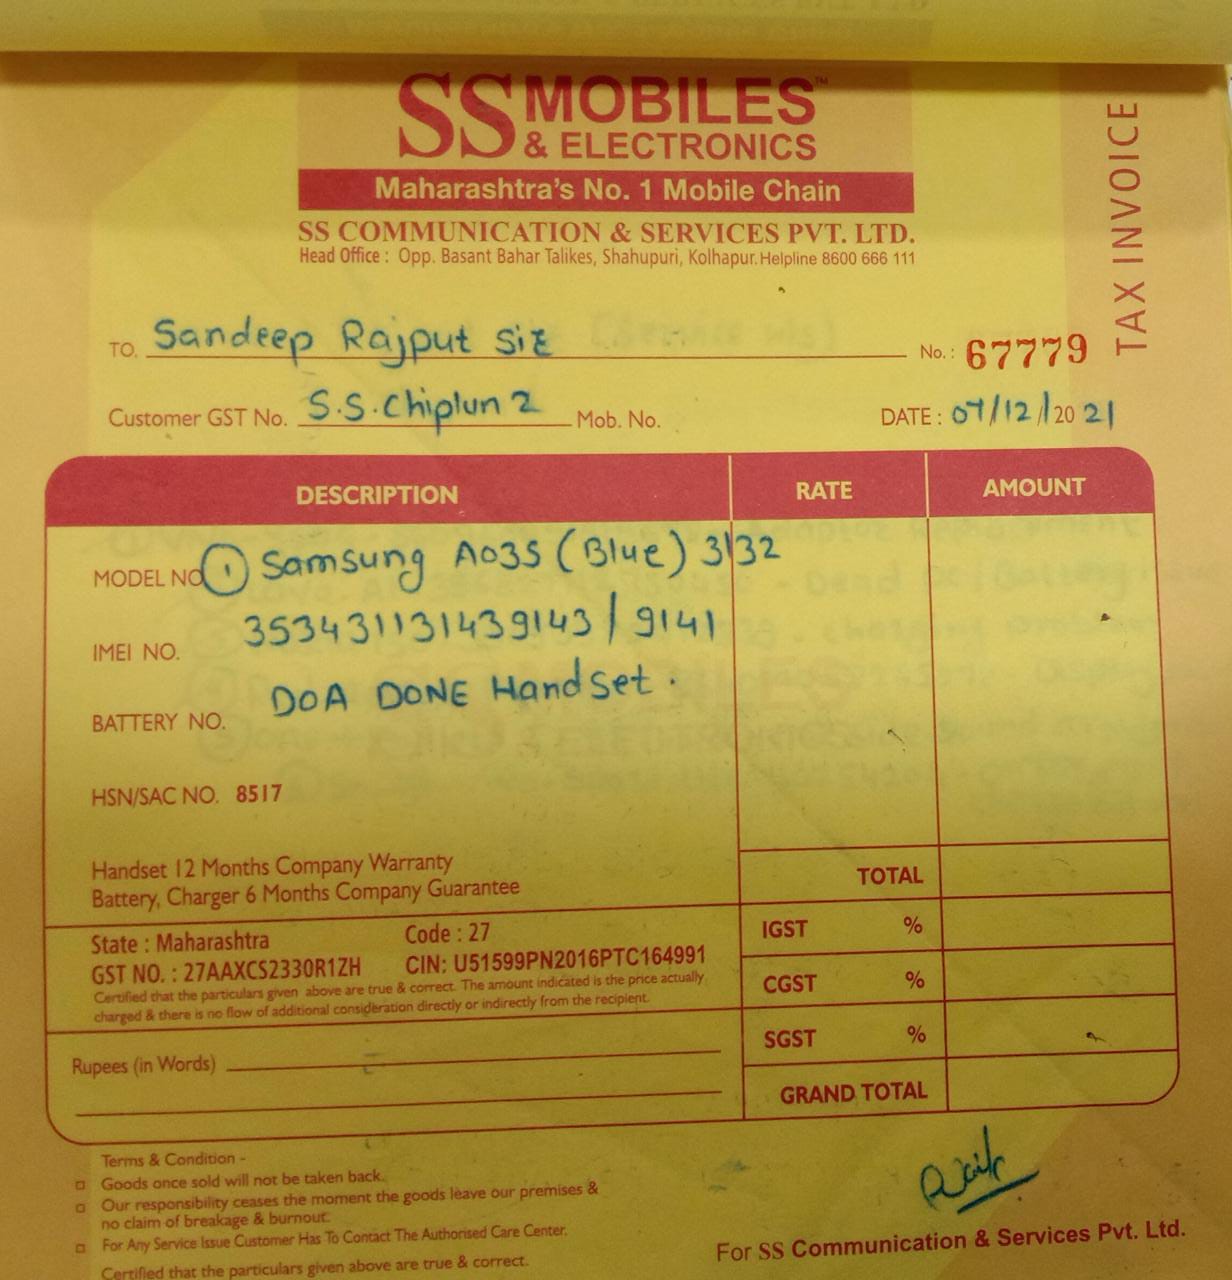 SS MOBILES™
& ELECTRONICS
Maharashtra's No. 1 Mobile Chain
SS COMMUNICATION & SERVICES PVT. LTD.
Head Office : Opp. Basant Bahar Talikes, Shahupuri, Kolhapur. Helpline 8600 666 111
TAX INVOICE
TO. Sandeep Rajput Sir No.: 67779
Customer GST No. S.S.Chiplun 2 Mob. No. DATE : 07/12/2021
DESCRIPTION RATE AMOUNT
MODEL NO. ① Samsung A03S (Blue) 3/32
IMEI NO. 353431131439143 / 9141
DOA DONE Handset.
BATTERY NO.
HSN/SAC NO. 8517
Handset 12 Months Company Warranty
Battery, Charger 6 Months Company Guarantee
TOTAL
State : Maharashtra Code : 27
GST NO. : 27AAXCS2330R1ZH CIN: U51599PN2016PTC164991
Certified that the particulars given above are true & correct. The amount indicated is the price actually
charged & there is no flow of additional consideration directly or indirectly from the recipient.
IGST %
CGST %
SGST %
Rupees (in Words)
GRAND TOTAL
Terms & Condition -
Goods once sold will not be taken back.
Our responsibility ceases the moment the goods leave our premises &
no claim of breakage & burnout.
For Any Service Issue Customer Has To Contact The Authorised Care Center.
Certified that the particulars given above are true & correct.
For SS Communication & Services Pvt. Ltd.